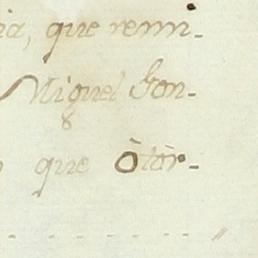 ia, que remi-
Miguel Gon-
que Òtòr-